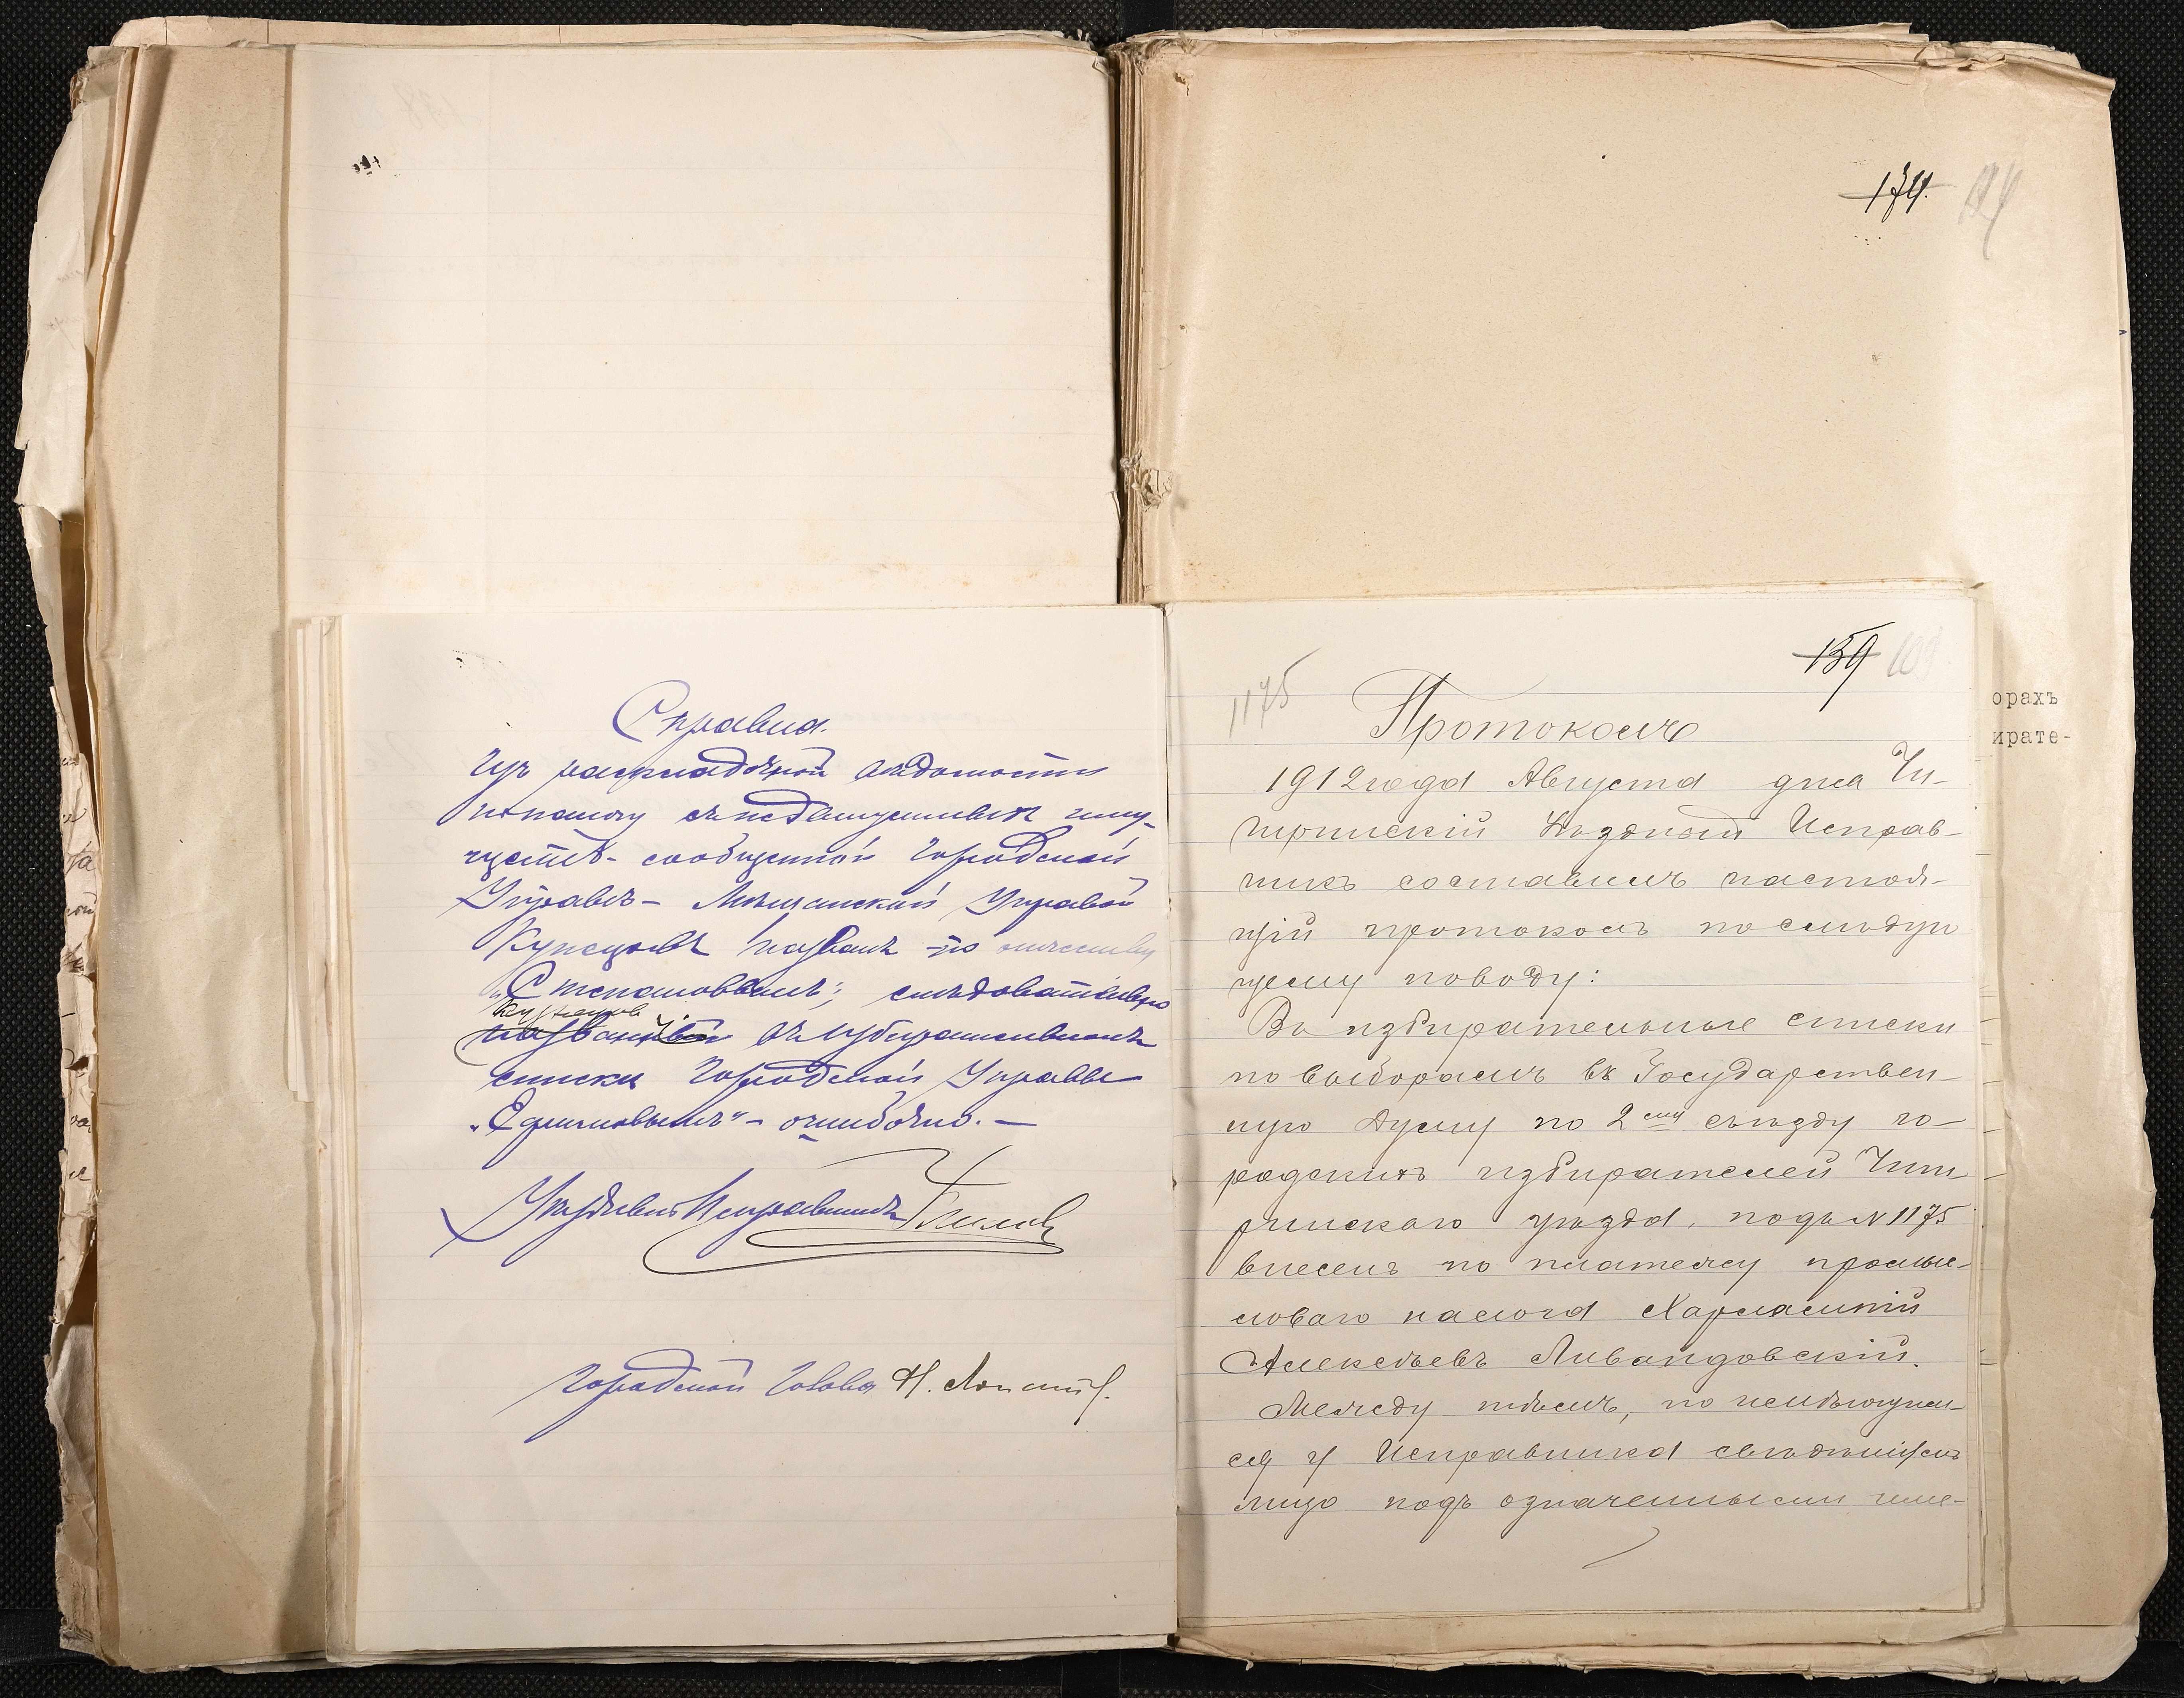 Справка.
Изъ раскладочной вѣдомости
по налогу съ недвижимыхъ иму-
ществъ - сообщенной Городской
Управѣ - Мѣщанской Управой
Кузнецовъ названъ по отчеству
„Степановымъ"; следовательно
Кузнецовъ
названный въ избирательномъ
списки Городской Управы
„Ефимовымъ" - ошибочно. -
Уѣздный Исправникъ
Городской Голова Н.
174.
1175
159
Протоколъ
1912 года Августа дня Чи-
гиринскій Уѣздный Исправ-
никъ составилъ настоя-
щій протоколъ по слѣдую
щему поводу:
Въ избирательные списки
по выборамъ въ Государствен-
ную Думу по 2 ему съѣзду го-
родскихъ избирателей Чиги
ринскаго уѣзда, подъ № 1175
внесенъ по платежу промы-
словаго налога Харлампій
Алексѣевъ Ливандовскій.
Между тѣмъ, по имѣющим-
ся у Исправника свѣдѣніямъ
лицо подъ означенными име-
орахъ
ирате-